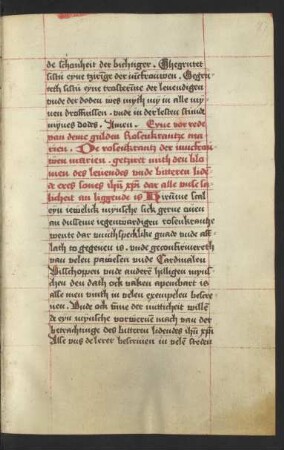 de schanheit der bichtiger. Ghegrutet
sistu eyne tzirnge der iuncfrouwen. Gegru
tet sistu eyne trosterine der leuendigen
vnde der doden wes myth my in alle my
nen droffnissen. vnde in der lesten stunde
mynes dodes. Amen. Eyne vor rede
van deme gulden Rosenkrantze ma
rien. De rosenkrantz der iuncfrou
wen marien. getziret mith den blo
men des leuendes vnde bitteren lide
des eres sones ihu xpi dar alle vnse sa
licheit an liggende is
eyn iewelick mynsche sick gerne
an dusseme iegenwardigen rosenkrantze
wente dar vnuthsprecklike gnade vnde af
lath to gegeuen is. vnde geconfirmereth
van velen pawesen vnde Cardinalen
Bisschopen vnde anderen hilligen mynsch
en den dath ock vaken apenbart is
alse men vinth in velen exempelen beschre
uen. Vnde ock vmme der nutticheit willen
de eyn mynsche vorweruen mach van der
betrachtinge des bitteren lidendes ihu xpi
Alse vns de lerer bescriuen in velen steden